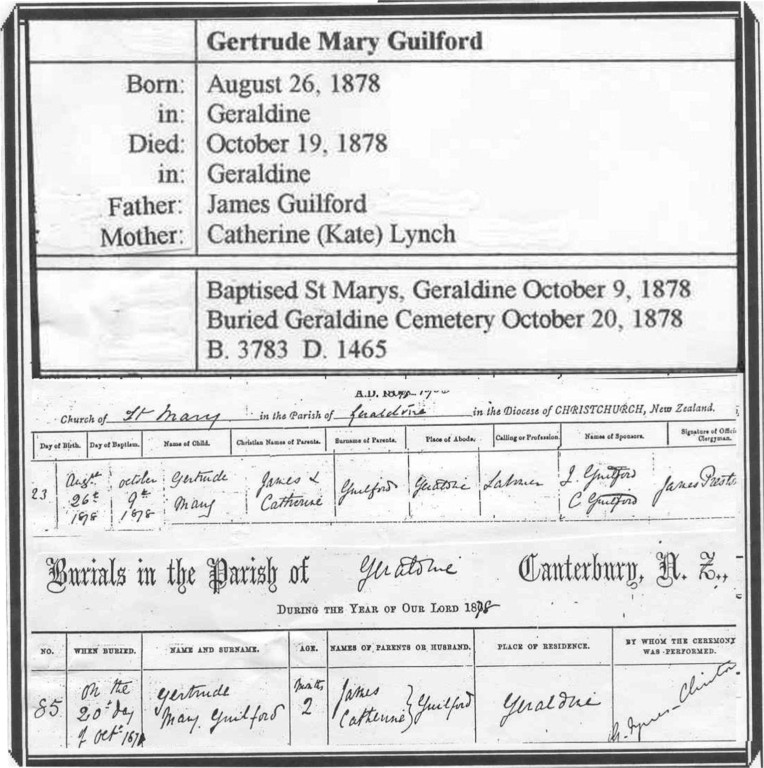 Gertrude Mary Guilford
Born: August 26, 1878
in: Geraldine
Died: October 19, 1878
in: Geraldine
Father: James Guilford
Mother: Catherine (Kate) Lynch
Baptised St Marys, Geraldine October 9, 1878
Buried Geraldine Cemetery October 20, 1878
B. 3783 D. 1465
A.D.
Church of St Mary in the Parish of Geraldine in the Diocese of CHRISTCHURCH, New Zealand.
Day of Birth. Day of Baptism. Name of Child. Christian Names of Parents. Surname of Parents. Place of Abode. Calling or Profession. Names of Sponsors. Signature of Offici
Clergyman.
Augst October Gertrude James & J. Guilford
23 26th 9th Mary Catherine Guilford Geraldine Labourer C Guilford James Presto
1878 1878
Burials in the Parish of Geraldine Canterbury, N. Z.,
DURING THE YEAR OF OUR LORD 1878
NO. WHEN BURIED. NAME AND SURNAME. AGE. NAMES OF PARENTS OR HUSBAND. PLACE OF RESIDENCE. BY WHOM THE CEREMONY
WAS PERFORMED.
on the Gertrude Months James
85 20th day Mary Guilford 2 Catherine } Guilford Geraldine
of Octr 1878